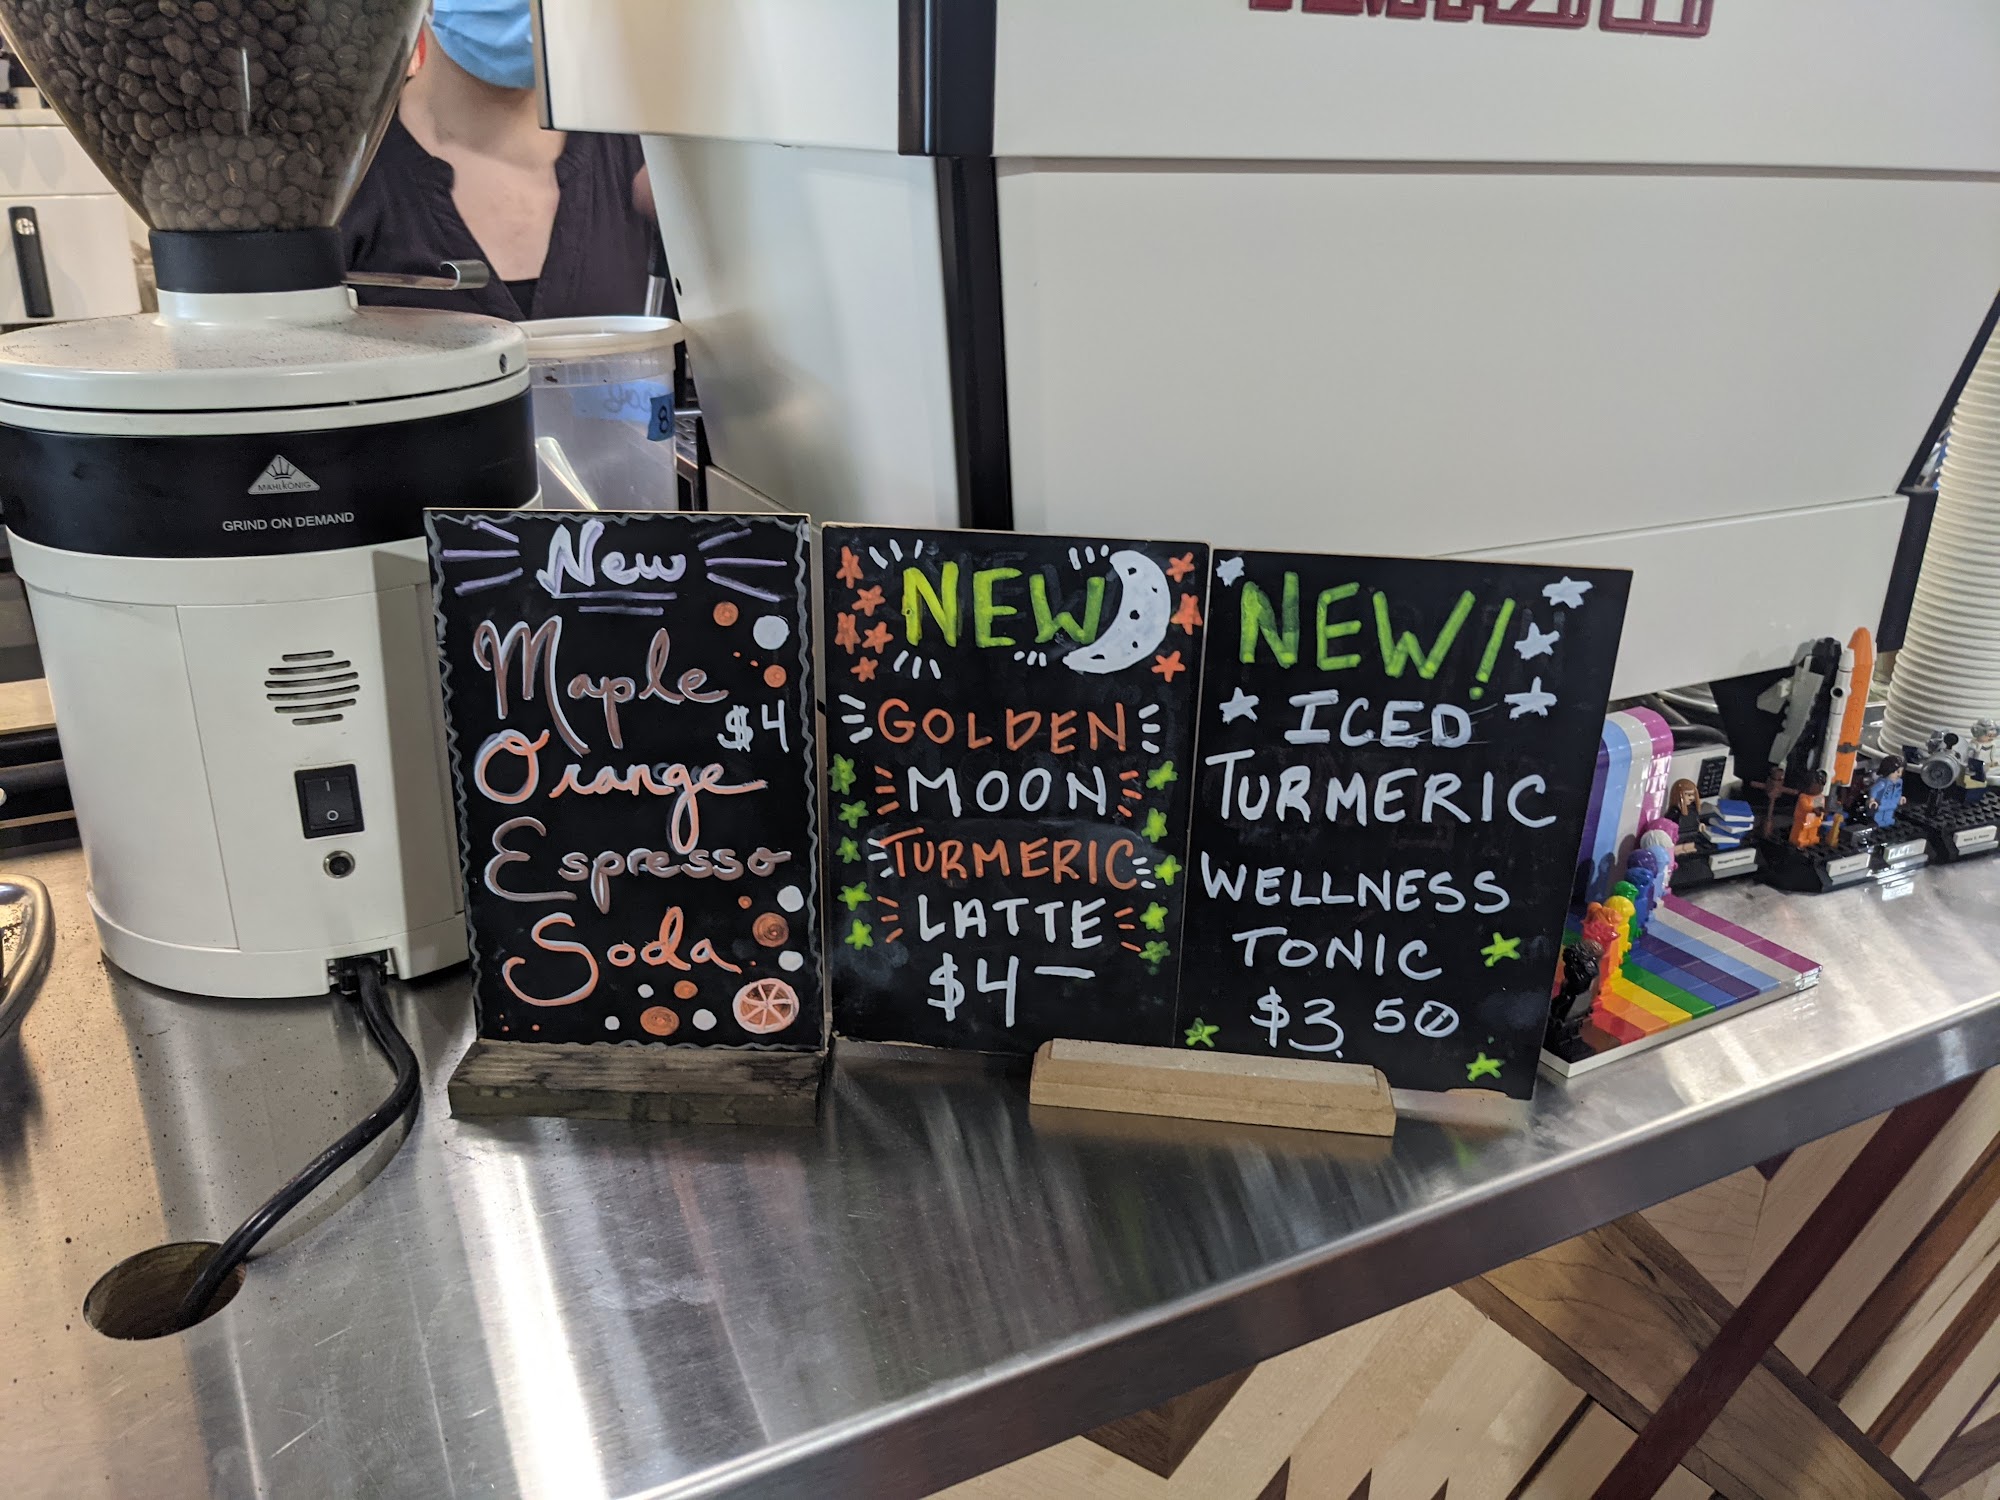 MAHLKÖNIG
GRIND ON DEMAND
New
Maple
$4
Orange
Espresso
Soda
NEW
GOLDEN
MOON
TURMERIC
LATTE
$4
NEW!
ICED
TURMERIC
WELLNESS
TONIC
$3.50